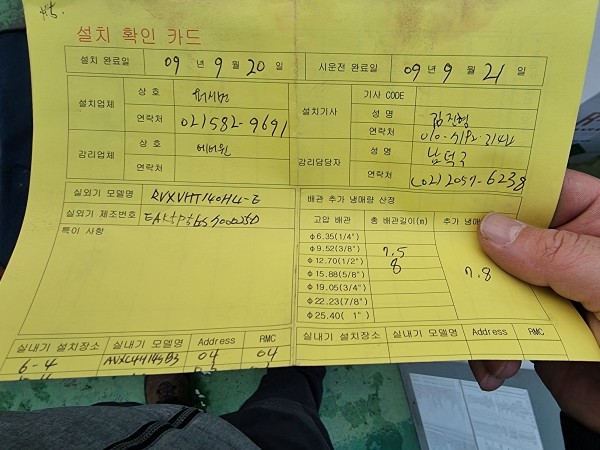 설치 확인 카드
설치 완료일 09 년 9 월 20 일 시운전 완료일 09 년 9 월 21 일
설치업체 상 호 설치기사 기사 CODE
성 명 김진형
연락처 02)582-9691 연락처
감리업체 상 호 에어윈 감리담당자 성 명 남덕우
연락처 연락처 02) 2057-6238
실외기 모델명 RVXVHT140H4-E 배관 추가 냉매량 산정
실외기 제조번호 고압 배관 총 배관길이(m) 추가 냉매
특이 사항
Φ6.35(1/4")
Φ9.52(3/8") 7.5
Φ12.70(1/2") 8
Φ15.88(5/8") 7.8
Φ19.05(3/4")
Φ22.23(7/8")
Φ25.40( 1")
실내기 설치장소 실내기 모델명 Address RMC 실내기 설치장소 실내기 모델명 Address RMC
6-4 04 04